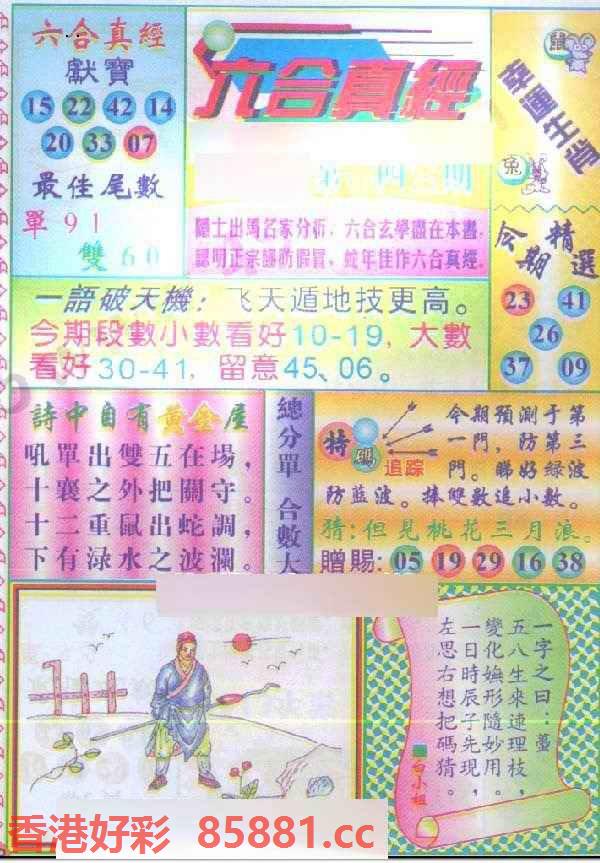 六合真經
獻寶
15 22 42 14
20 33 07
最佳尾數
單91
雙60
六合真經
鼠
兔
幸運生肖
隱士出馬名家分析，六合玄學盡在本書，
認明正宗謹防假冒，蛇年佳作六合真經。
今期精選
23 41
26
37 09
一語破天機：飞天遁地技更高。
今期段數小數看好10-19，大數
看好30-41，留意45、06。
詩中自有黃金屋
吼單出雙五在場，
十襄之外把關守。
十二重鼠出蛇調，
下有渌水之波瀾。
總分單 合數大
特碼
追踪
今期預測于第
一門，防第三
門。睇好綠波
防蓝波。捧雙數追小數。
猜：但見桃花三月浪。
贈賜：05 19 29 16 38
一字之曰：薑
五八生來連理枝，
變化嫵形隨妙用，
一日時辰子先現，
左思右想把碼猜。
白小姐
香港好彩 85881.cc